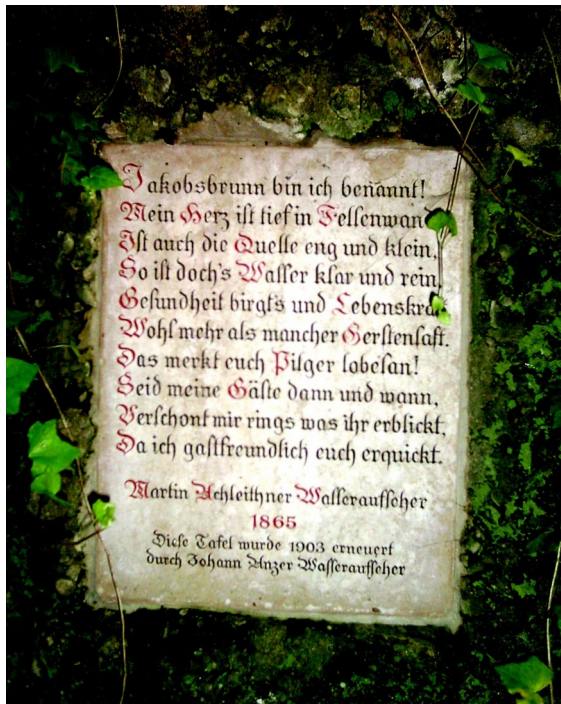 Jakobsbrunn bin ich benannt!
Mein Herz ist tief in Felsenwand
Ist auch die Quelle eng und klein,
So ist doch's Wasser klar und rein,
Gesundheit birgt's und Lebenskra
Wohl mehr als mancher Gerstensaft.
Das merkt euch Pilger lobesan!
Seid meine Gäste dann und wann,
Verschont mir rings was ihr erblickt,
Da ich gastfreundlich euch erquickt.
Martin Achleithner Wasseraufseher
1865
Diese Tafel wurde 1903 erneuert
durch Johann Anzer Wasseraufseher